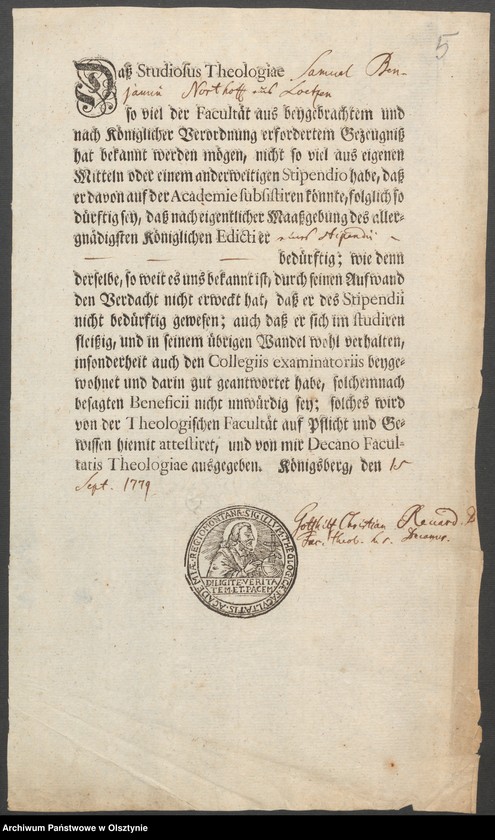 5
Daß Studiosus Theologiae Samuel Ben-
jamin Northoff aus Loetzen
so viel der Facultät aus beygebrachtem und
nach Königlicher Verordnung erfordertem Gezeugniß
hat bekannt werden mögen, nicht so viel aus eigenen
Mitteln oder einem anderweitigen Stipendio habe, daß
er davon auf der Academie subsistiren könnte, folglich so
dürftig sey, daß nach eigentlicher Maaßgebung des aller-
gnädigsten Königlichen Edicti er eines Stipendii
bedürftig; wie denn
derselbe, so weit es uns bekannt ist, durch seinen Aufwand
den Verdacht nicht erweckt hat, daß er des Stipendii
nicht bedürftig gewesen; auch daß er sich im studiren
fleißig, und in seinem übrigen Wandel wohl verhalten,
insonderheit auch den Collegiis examinatoriis beyge-
wohnet und darin gut geantwortet habe, solchemnach
besagten Beneficii nicht unwürdig sey; solches wird
von der Theologischen Facultät auf Pflicht und Ge-
wissen hiemit attestiret, und von mir Decano Facul-
tatis Theologiae ausgegeben. Königsberg, den 15
Sept. 1779
Gotthilf Christian
Fac. theol. h. t. Decanus.
SIGILLVM THEOLOGICÆ FACVLTATIS ACADEMIÆ REGIOMONTANÆ
DILIGITE VERITA
TEM ET PACEM
Archiwum Państwowe w Olsztynie